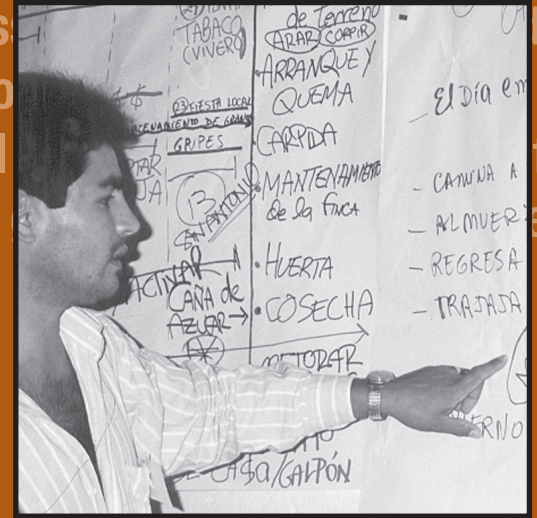 TABACO
(VIVERO)
23 FIESTA LOCAL
GRIPES
13
SAN ANTONIO
ACTIVAR
CAÑA de
AZUCAR →
de Terreno
ARAR CORPIR
• ARRANQUE Y
QUEMA
• CARPIDA
• MANTENAMIENTO
de la finca
• HUERTA
• COSECHA
MEJORAR
CASA/GALPÓN
El Día em
- CAMINA A
- ALMUER
- REGRESA
- TRAJAJA
ERNO